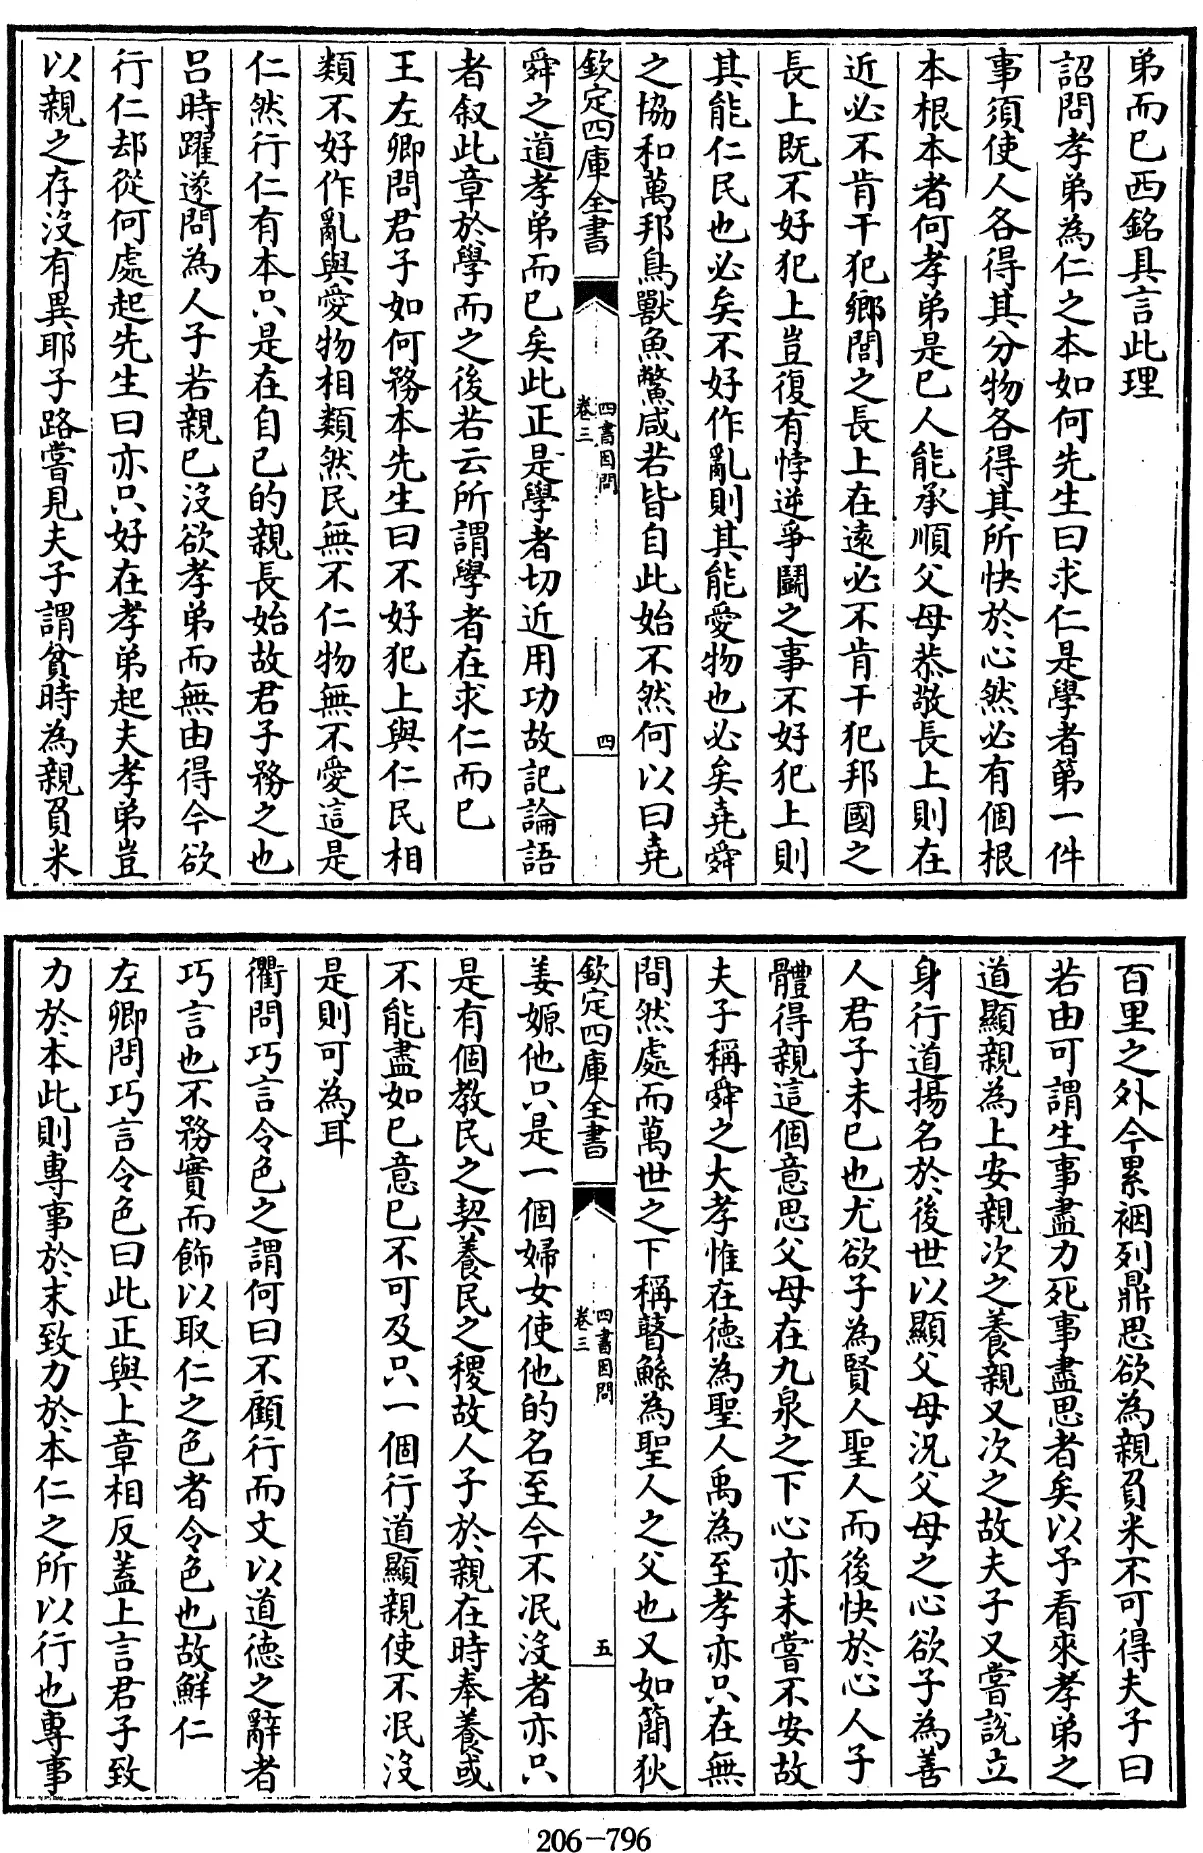 弟而已西銘具言此理
詔問孝弟為仁之本如何先生曰求仁是學者第一件
事須使人各得其分物各得其所快於心然必有個根
本根本者何孝弟是已人能承順父母恭敬長上則在
近必不肯干犯鄉閭之長上在遠必不肯干犯邦國之
長上既不好犯上豈復有悖逆爭鬬之事不好犯上則
其能仁民也必矣不好作亂則其能愛物也必矣堯舜
之協和萬邦鳥獸魚鱉咸若皆自此始不然何以曰堯
欽定四庫全書
四書因問
卷三
四
舜之道孝弟而已矣此正是學者切近用功故記論語
者叙此章於學而之後若云所謂學者在求仁而已
王左卿問君子如何務本先生曰不好犯上與仁民相
類不好作亂與愛物相類然民無不仁物無不愛這是
仁然行仁有本只是在自已的親長始故君子務之也
呂時躍遂問為人子若親已沒欲孝弟而無由得今欲
行仁却從何處起先生曰亦只好在孝弟起夫孝弟豈
以親之存沒有異耶子路嘗見夫子謂貧時為親負米
百里之外今累裀列鼎思欲為親負米不可得夫子曰
若由可謂生事盡力死事盡思者矣以予看來孝弟之
道顯親為上安親次之養親又次之故夫子又嘗說立
身行道揚名於後世以顯父母況父母之心欲子為善
人君子未已也尤欲子為賢人聖人而後快於心人子
體得親這個意思父母在九泉之下心亦未嘗不安故
夫子稱舜之大孝惟在德為聖人禹為至孝亦只在無
間然處而萬世之下稱瞽鯀為聖人之父也又如簡狄
欽定四庫全書
四書因問
卷三
五
姜嫄他只是一個婦女使他的名至今不泯沒者亦只
是有個教民之契養民之稷故人子於親在時奉養或
不能盡如已意已不可及只一個行道顯親使不泯沒
是則可為耳
衢問巧言令色之謂何曰不顧行而文以道德之辭者
巧言也不務實而飾以取仁之色者令色也故鮮仁
左卿問巧言令色曰此正與上章相反蓋上言君子致
力於本此則專事於末致力於本仁之所以行也專事
206-796